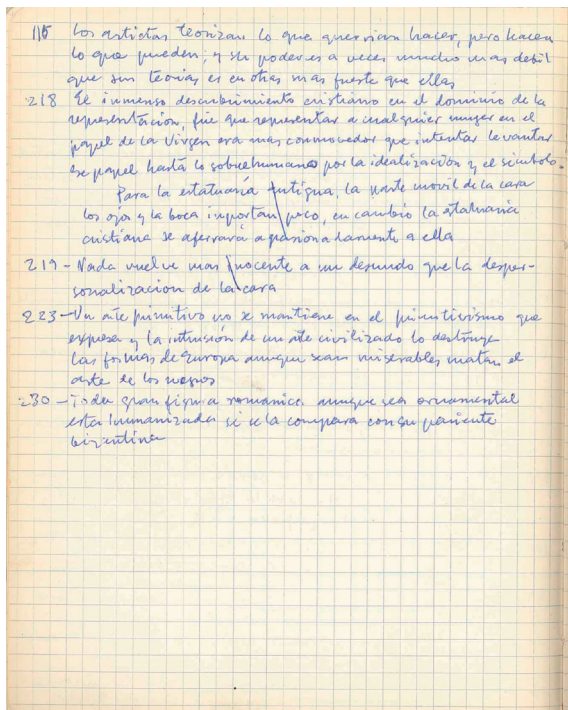 115 Los artistas teorizan lo que querrian hacer, pero hacen
lo que pueden; y su poder es a veces mucho mas debil
que sus teorias es en otras mas fuerte que ellas
218 El inmenso descubrimiento cristiano en el dominio de la
representación, fue que representar a cualquier mujer en el
papel de la Virgen era mas conmovedor que intentar levantar
ese papel hasta lo sobrehumano por la idealización y el simbolo.
Para la estatuaria antigua, la parte movil de la cara
los ojos y la boca importan poco, en cambio la estatuaria
cristiana se aferrará apasionadamente a ella
219 - Nada vuelve mas inocente a un desnudo que la desper-
sonalización de la cara
223 - Un arte primitivo no se mantiene en el primitivismo que
expresa y la intrusión de un arte civilizado lo destruye
Las formas de Europa aunque sean miserables matan el
arte de los negros
230 - Toda gran figura romanica aunque sea ornamental
esta humanizada si se la compara con su pariente
bizantina